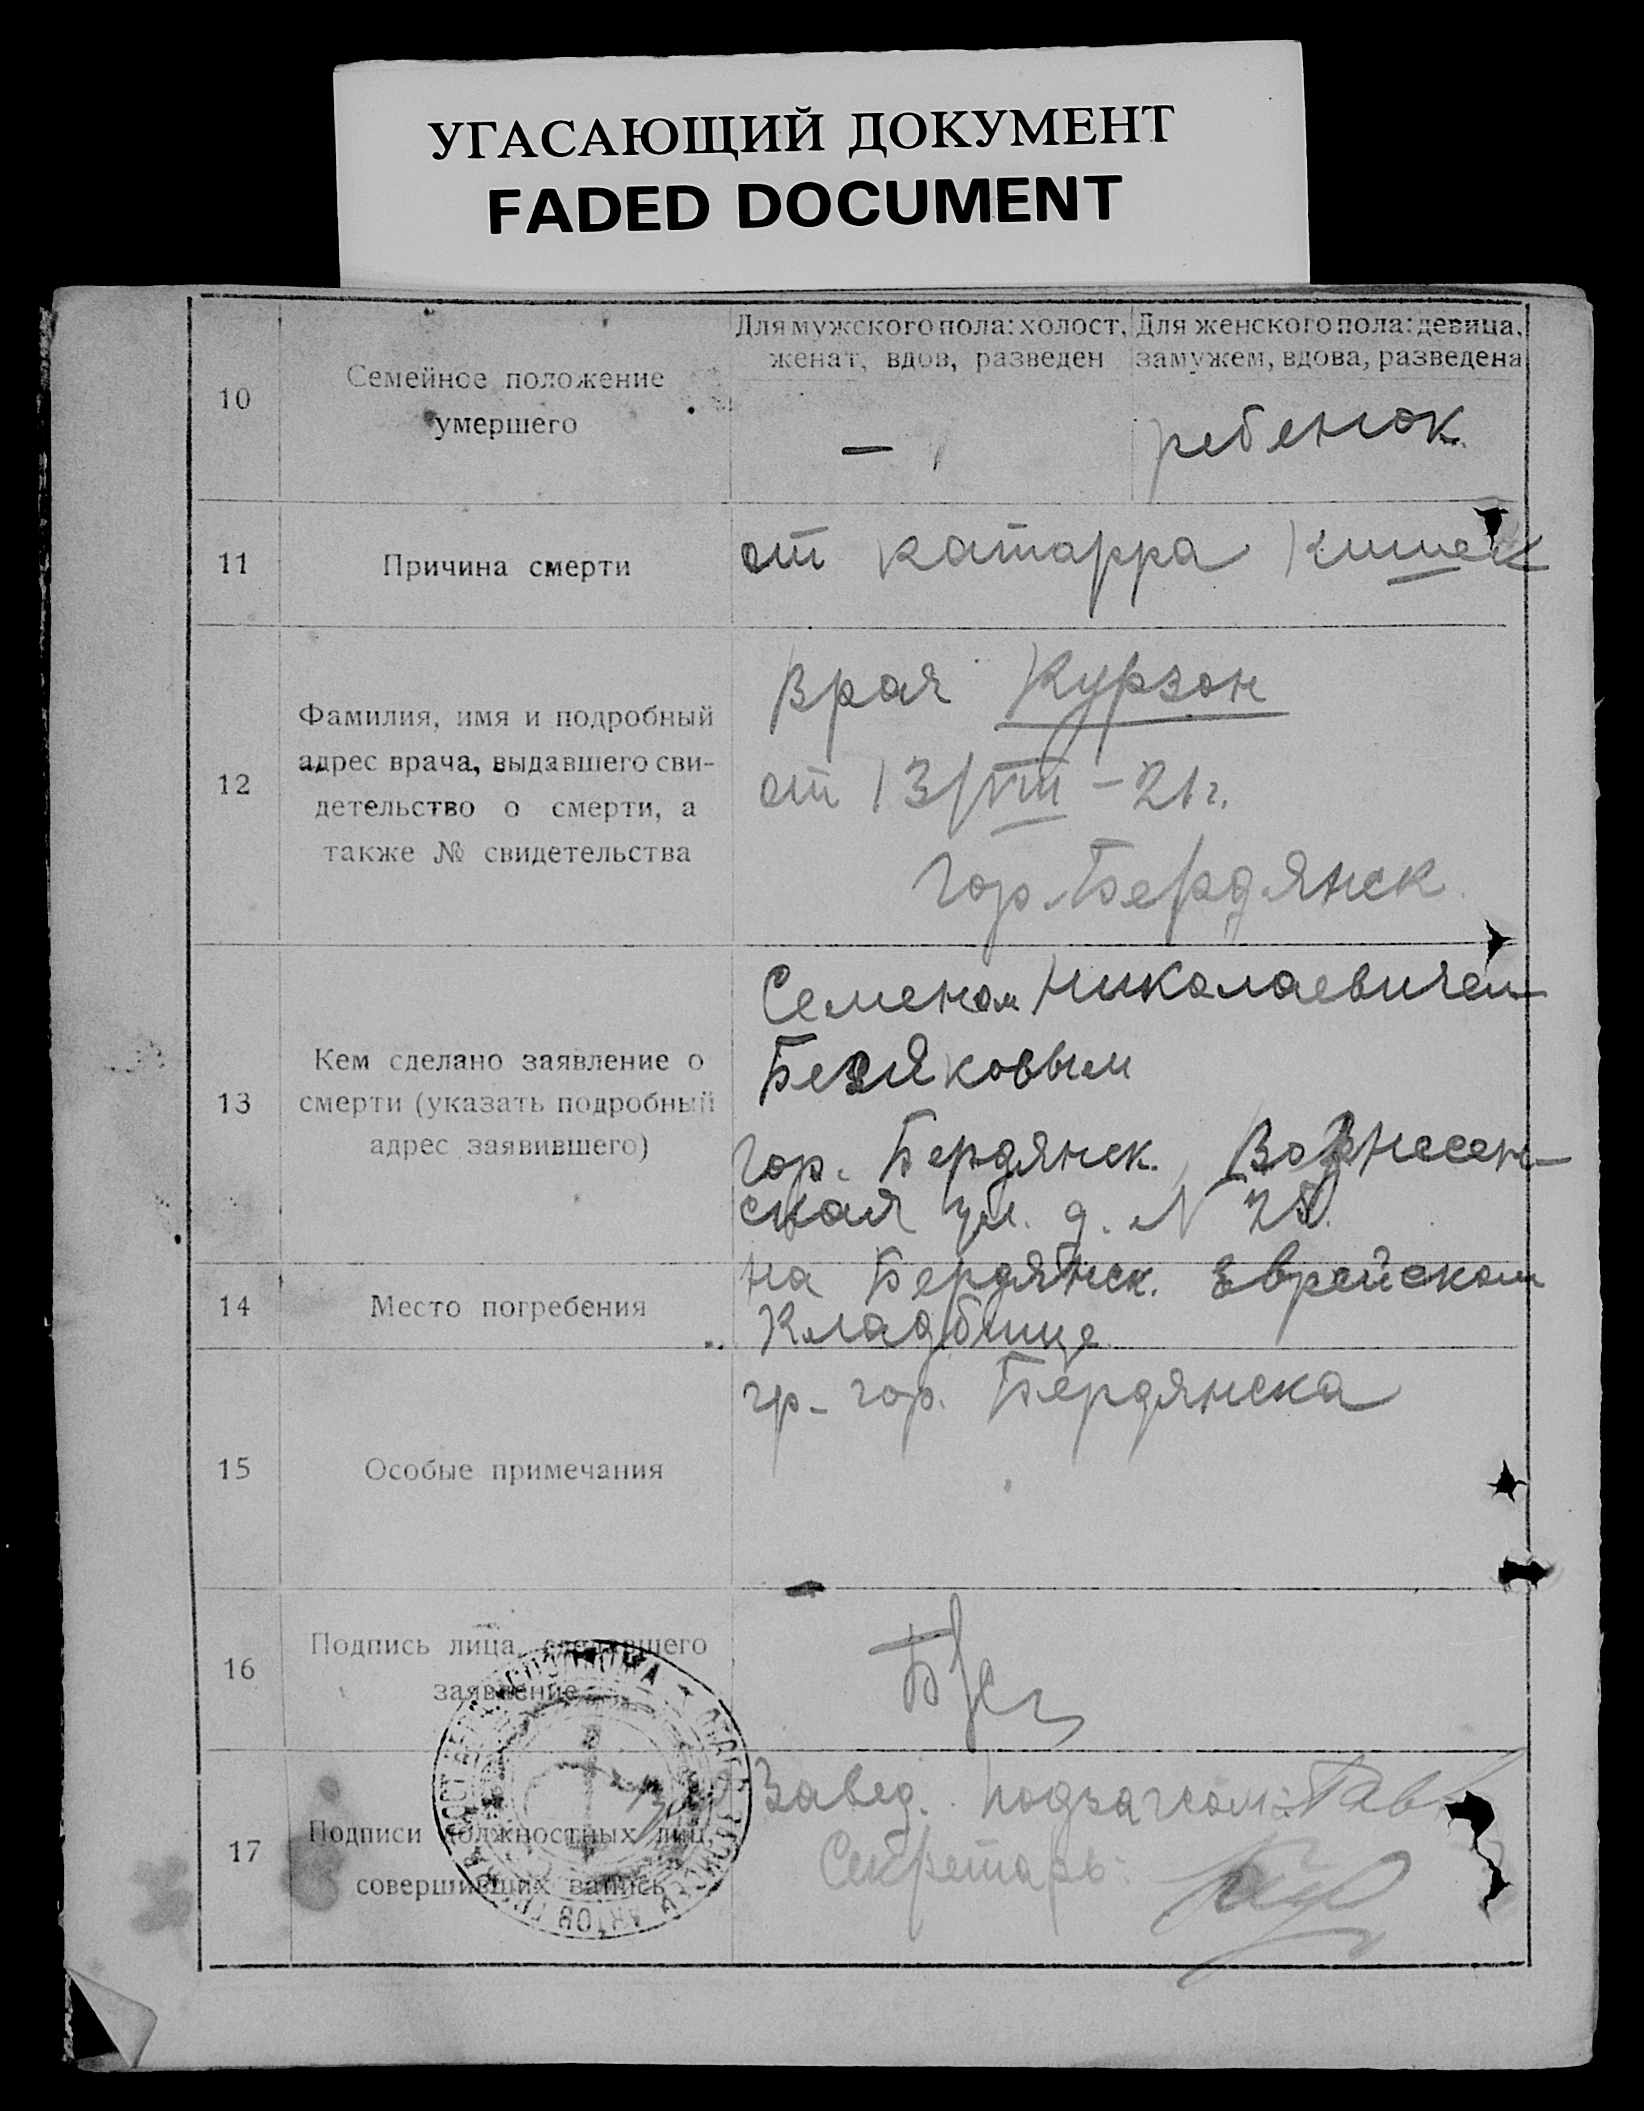 УГАСАЮЩИЙ ДОКУМЕНТ
FADED DOCUMENT
Для мужского пола: холост,
женат, вдов, разведен
Для женского пола: девица,
замужем, вдова, разведена
10
Семейное положение
умершего
—
ребенок.
11
Причина смерти
от катарра кишек
12
Фамилия, имя и подробный
адрес врача, выдавшего сви-
детельство о смерти, а
также № свидетельства
Врач Курзон
от 13/VIII – 21 г.
гор. Бердянск.
13
Кем сделано заявление о
смерти (указать подробный
адрес заявившего)
Семеном Николаевичем
гор. Бердянск. Вознесен-
ская ул. д. N
14
Место погребения
на Бердянск. Еврейском
Кладбище
15
Особые примечания
гр- гор. Бердянска
16
Подпись лица, сделавшего
заявление
17
Подписи должностных лиц,
совершивших запись
Завед. подзагсом:
Секретарь: